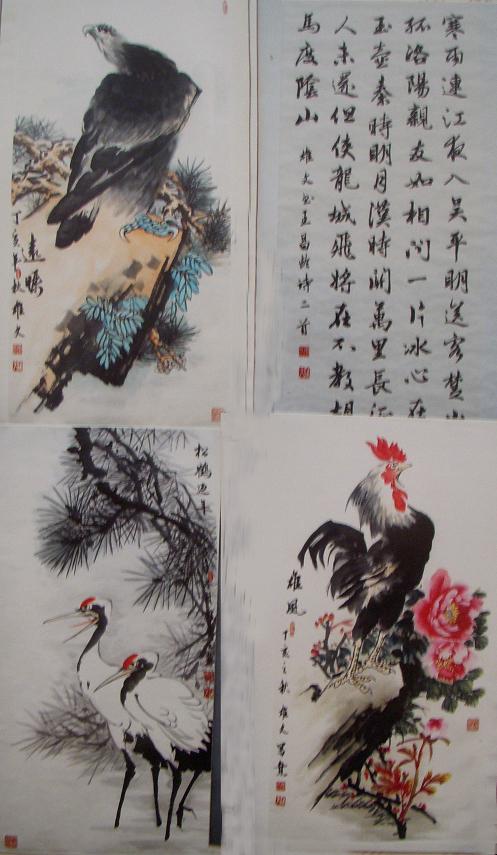 遠矚
丁亥年秋雄文
寒雨連江夜入吴平明送客楚山
孤洛陽親友如相問一片冰心在
玉壺秦時明月漢時關萬里長征
人未還但使龍城飛將在不教胡
馬度陰山
雄文书王昌龄诗二首
松鶴延年
雄風
丁亥之秋雄文